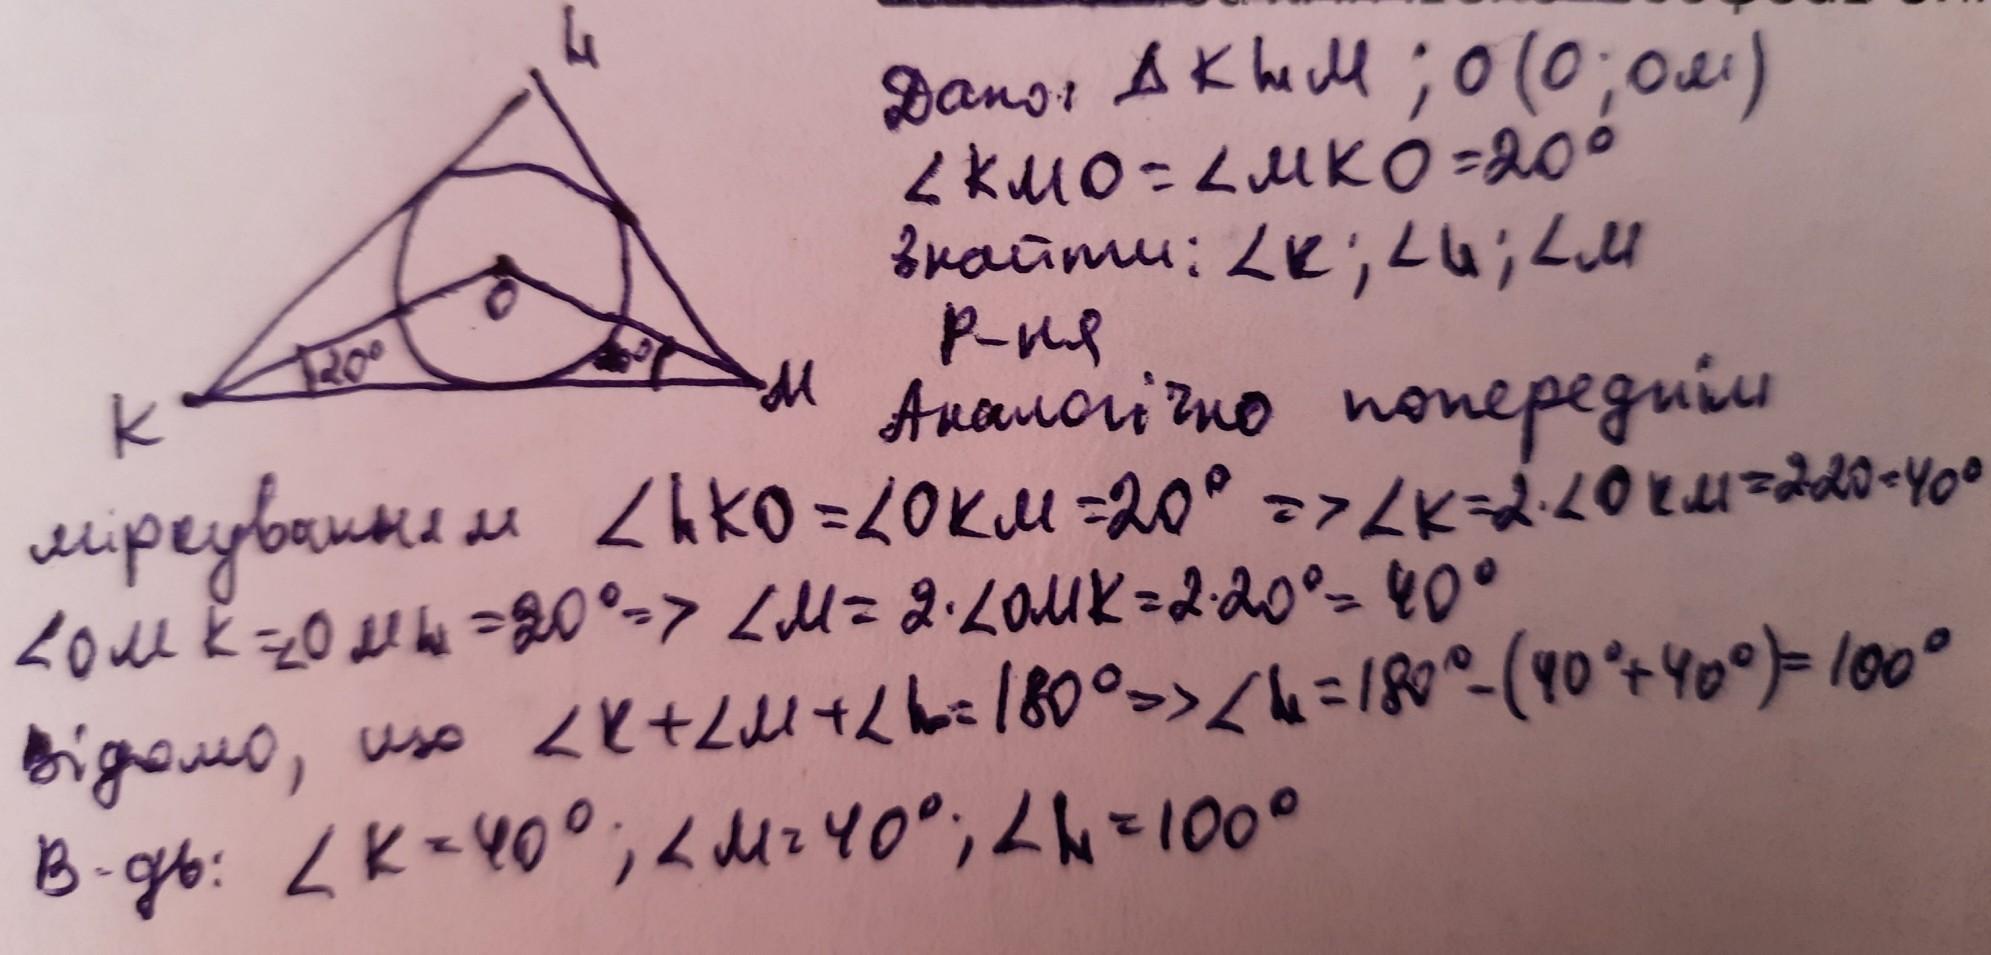 L
K
M
O
20°
20°
Дано: Δ KLM ; O (O; OM)
∠KMO = ∠MKO = 20°
Знайти: ∠K; ∠L; ∠M
Р-ня
Аналогічно попереднім
міркуванням ∠LKO = ∠OKM = 20° => ∠K = 2·∠OKM = 2·20 = 40°
∠OMK = ∠OML = 20° => ∠M = 2·∠OMK = 2·20° = 40°
Відомо, що ∠K + ∠M + ∠L = 180° => ∠L = 180° - (40° + 40°) = 100°
В-дь: ∠K = 40°; ∠M = 40°; ∠L = 100°